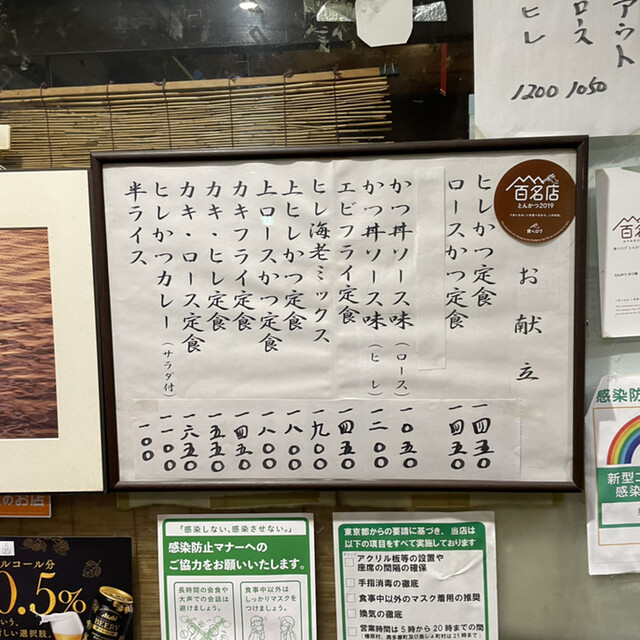 アウト
ロース
ヒレ
1050
1200
百名店
とんかつ2019
食べログ
お献立
ヒレかつ定食 一四五〇
ロースかつ定食 一四五〇
かつ丼ソース味(ロース) 一〇五〇
かつ丼ソース味(ヒレ) 一二〇〇
エビフライ定食 一四五〇
ヒレ海老ミックス 一九〇〇
上ヒレかつ定食 一八〇〇
上ロースかつ定食 一八〇〇
カキフライ定食 一四五〇
カキ・ヒレ定食 一五五〇
カキ・ロース定食 一六五〇
ヒレかつカレー(サラダ付) 一一〇〇
半ライス 一〇〇
百名店
感染防
新型コ
感染
のお店
ルコール分
0.5%
Asahi
「感染しない、感染させない。」
感染防止マナーへの
ご協力をお願いいたします。
長時間の会食や
大声での会話は
避けましょう。
食事中以外は
しっかりマスクを
つけましょう。
東京都からの要請に基づき、当店は
以下の項目をすべて実施しております
アクリル板等の設置や
座席の間隔の確保
手指消毒の徹底
食事中以外のマスク着用の推奨
換気の徹底
営業時間は5時から20時までの間